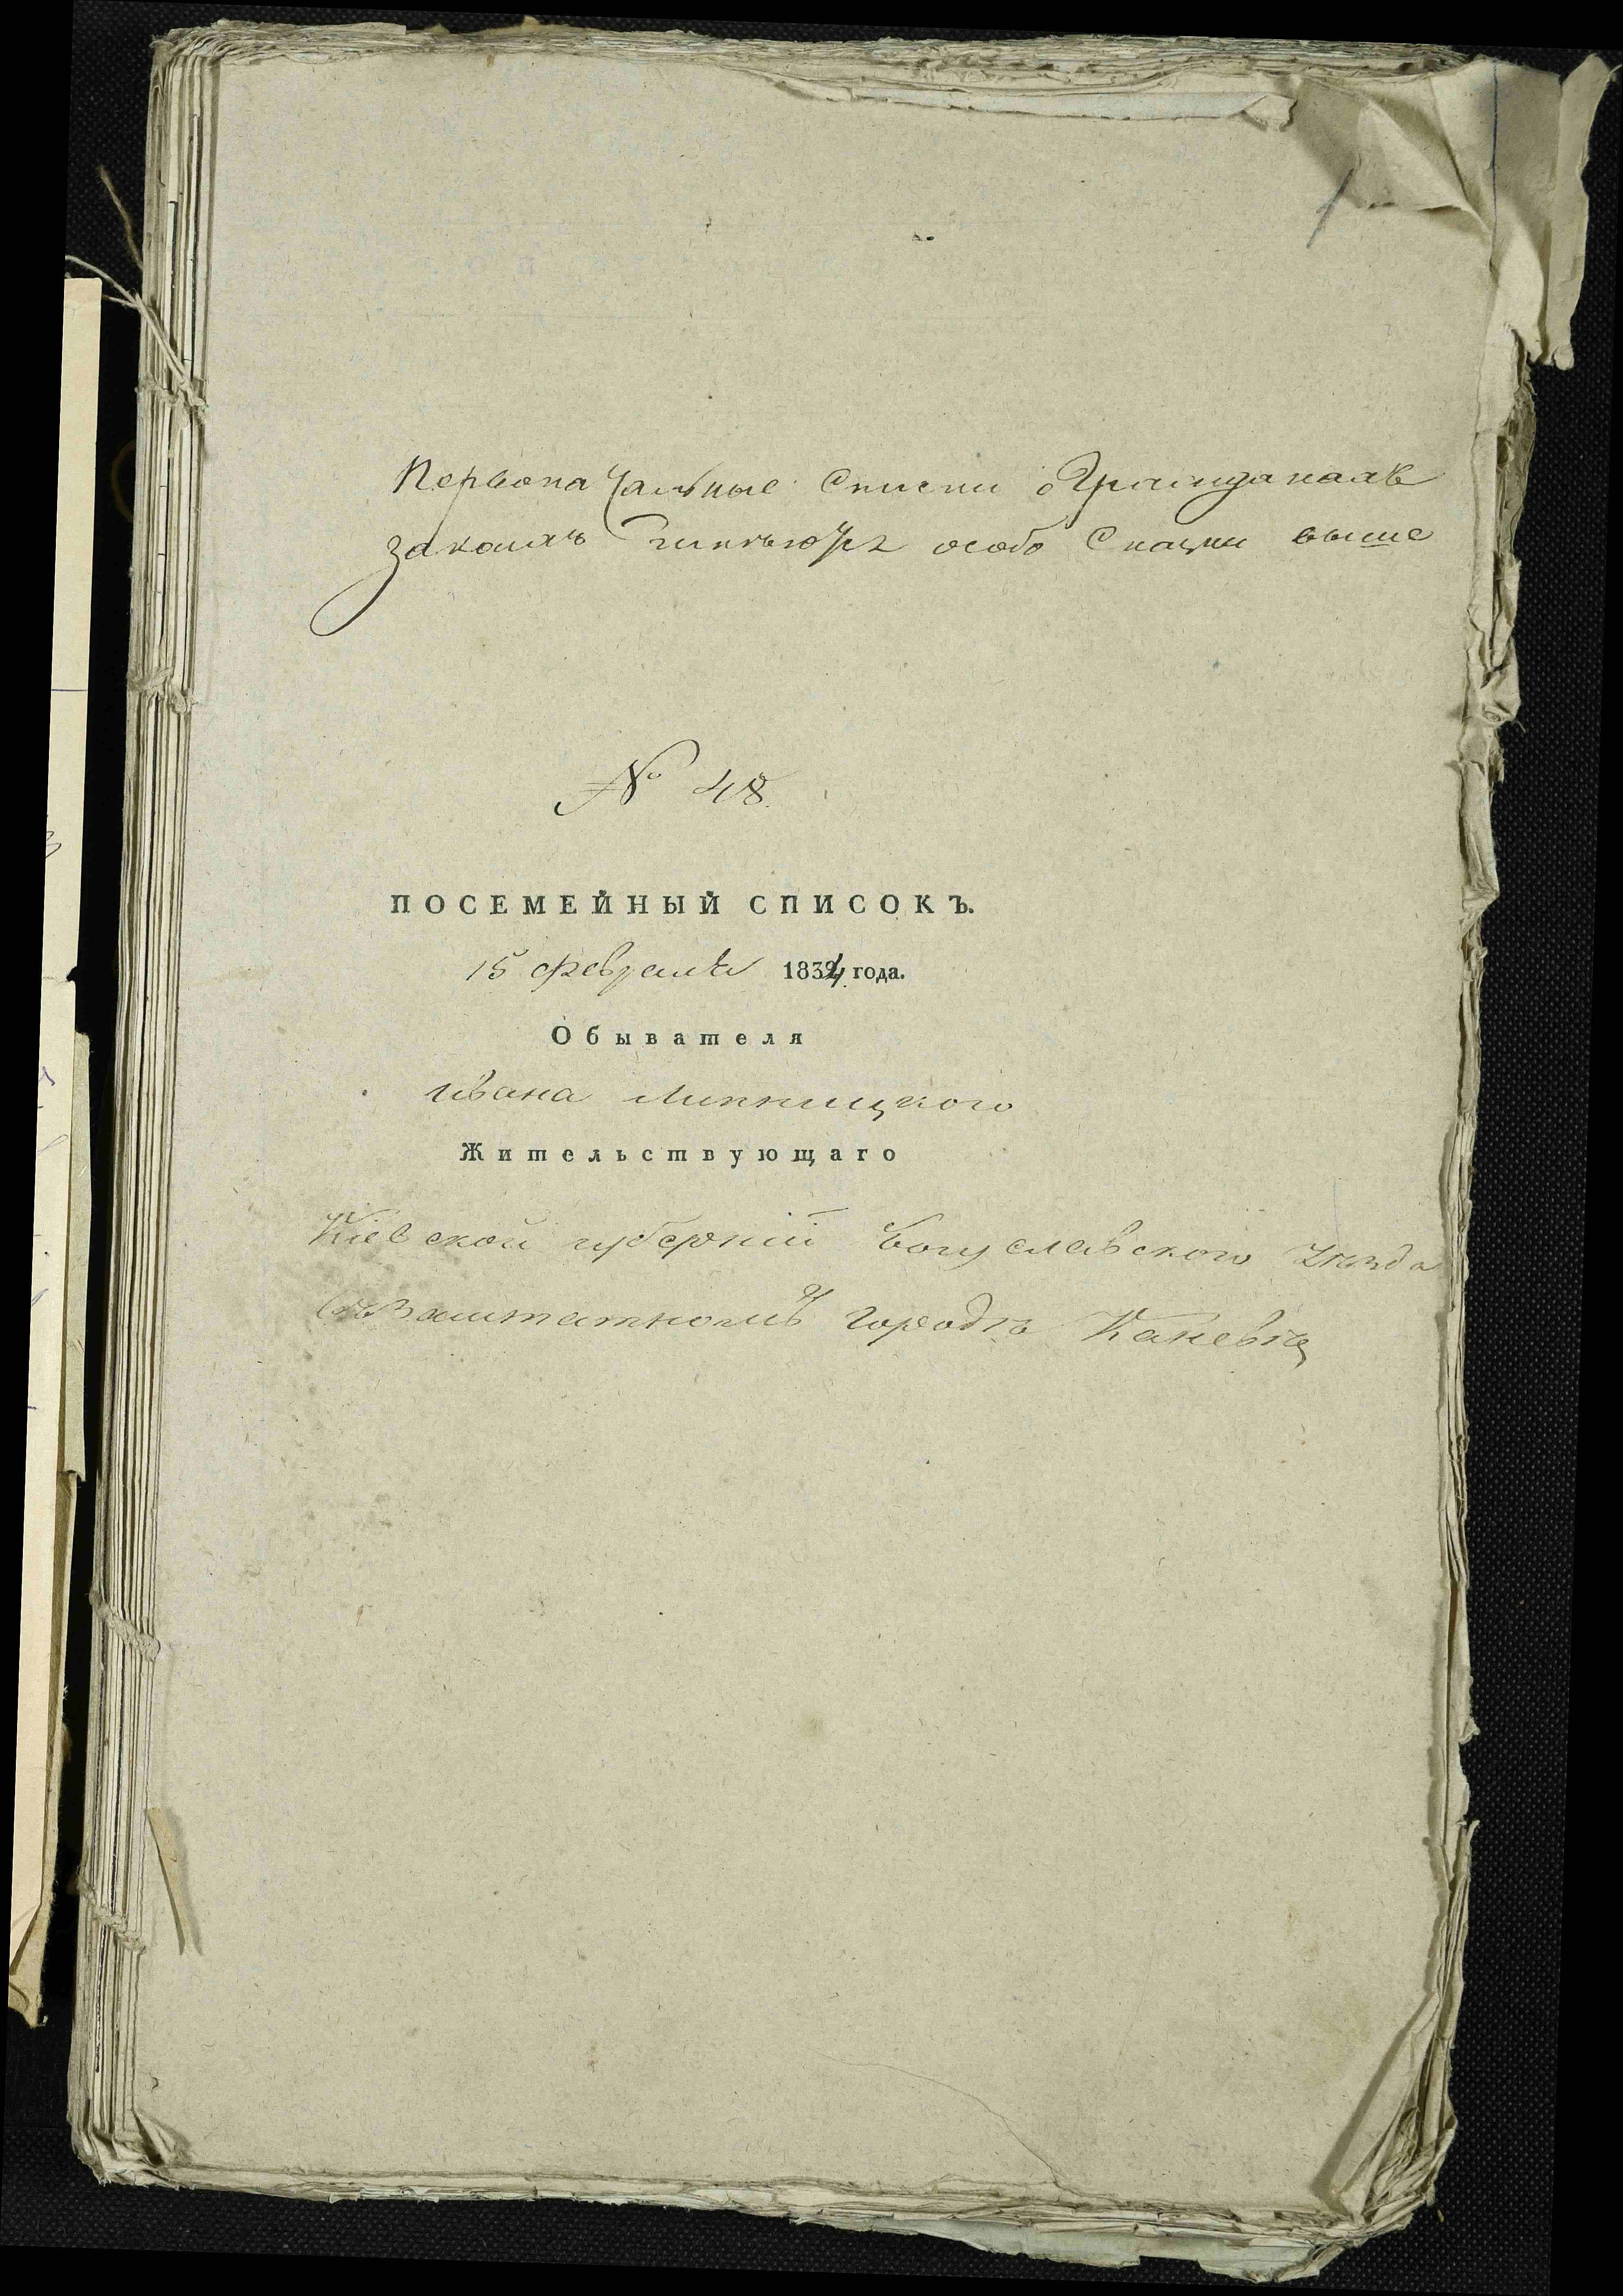 Первоначальные Списки о Гражданахъ
особо выше
№ 48.
ПОСЕМЕЙНЫЙ СПИСОКЪ.
15 февраля 1834 года.
Обывателя
Ивана Липницкого
Жительствующаго
Кіевской губерніи Богуславского уѣзда
въ Заштатномъ Городѣ Каневѣ